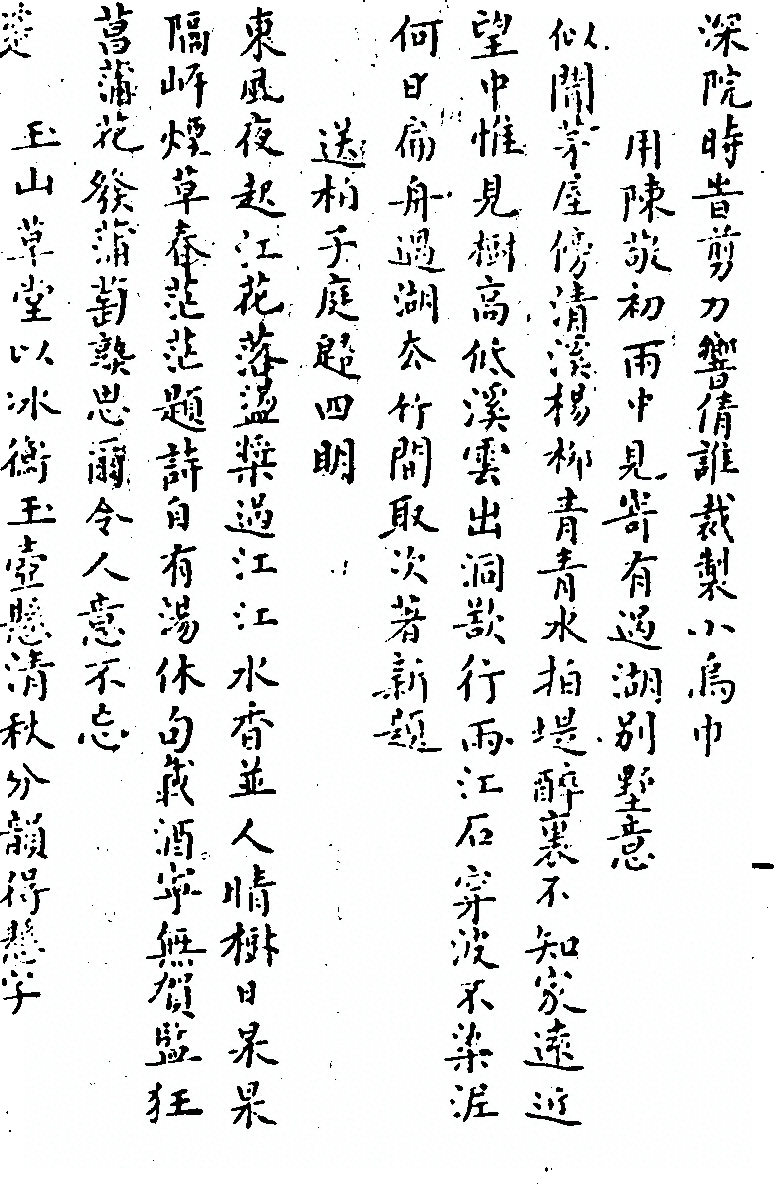 深院時吉剪刀響倩誰裁製小烏巾
用陳敬初雨中見寄有過湖別墅意
似聞茅屋傍清溪楊柳青青水拍堤醉裏不知家遠近
望中惟見樹高低溪雲出洞歘行雨江石穿波不染泥
何日扁舟過湖去竹間取次著新題
送柏子庭歸四明
東風夜起江花落盪槳過江江水香並人晴樹日杲杲
隔岍煙草春茫茫題詩自有湯休句載酒寧無賀監狂
菖蒲花發蒲萄熟思爾令人意不忘
玉山草堂以冰衡玉壺懸清秋分韻得懸字